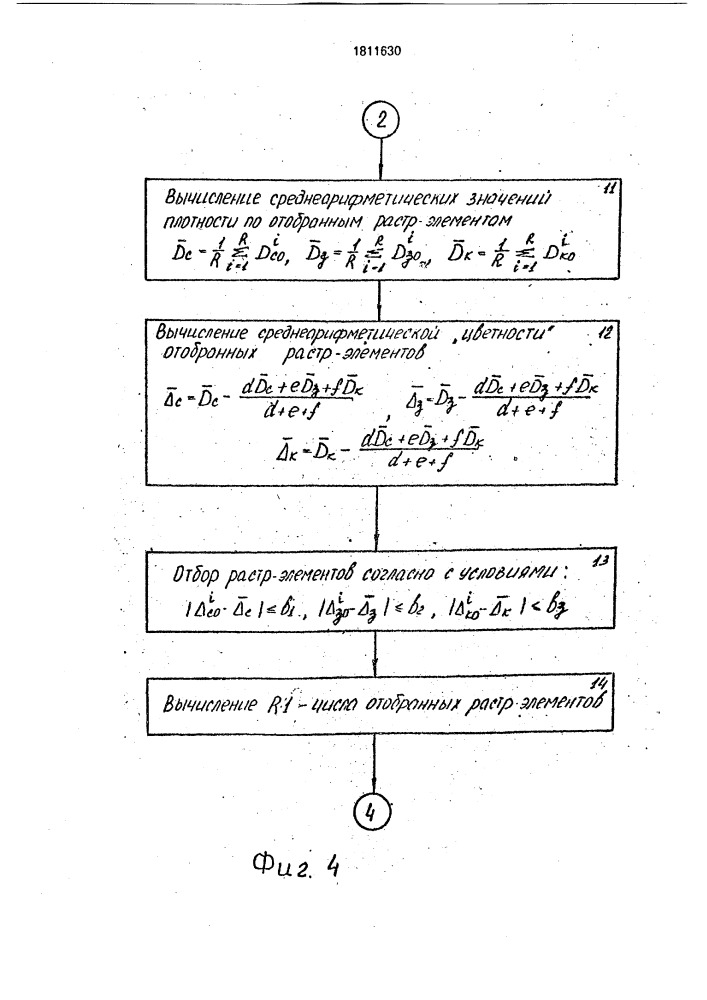 1811630
2
11
Вычисление среднеарифметических значений
плотности по отобранным растр-элементам
D̄с = 1/R Σ(i=1…R) Dⁱсо, D̄з = 1/R Σ(i=1…R) Dⁱзо, D̄к = 1/R Σ(i=1…R) Dⁱко
12
Вычисление среднеарифметической „цветности"
отобранных растр-элементов
Δ̄с = D̄с - (dD̄с + eD̄з + fD̄к)/(d+e+f), Δ̄з = D̄з - (dD̄с + eD̄з + fD̄к)/(d+e+f)
Δ̄к = D̄к - (dD̄с + eD̄з + fD̄к)/(d+e+f)
13
Отбор растр-элементов согласно с условиями:
|Δⁱсо - Δ̄с| ≤ b₁, |Δⁱзо - Δ̄з| ≤ b₂, |Δⁱко - Δ̄к| < b₃
14
Вычисление R1 - числа отобранных растр-элементов
4
Фиг. 4